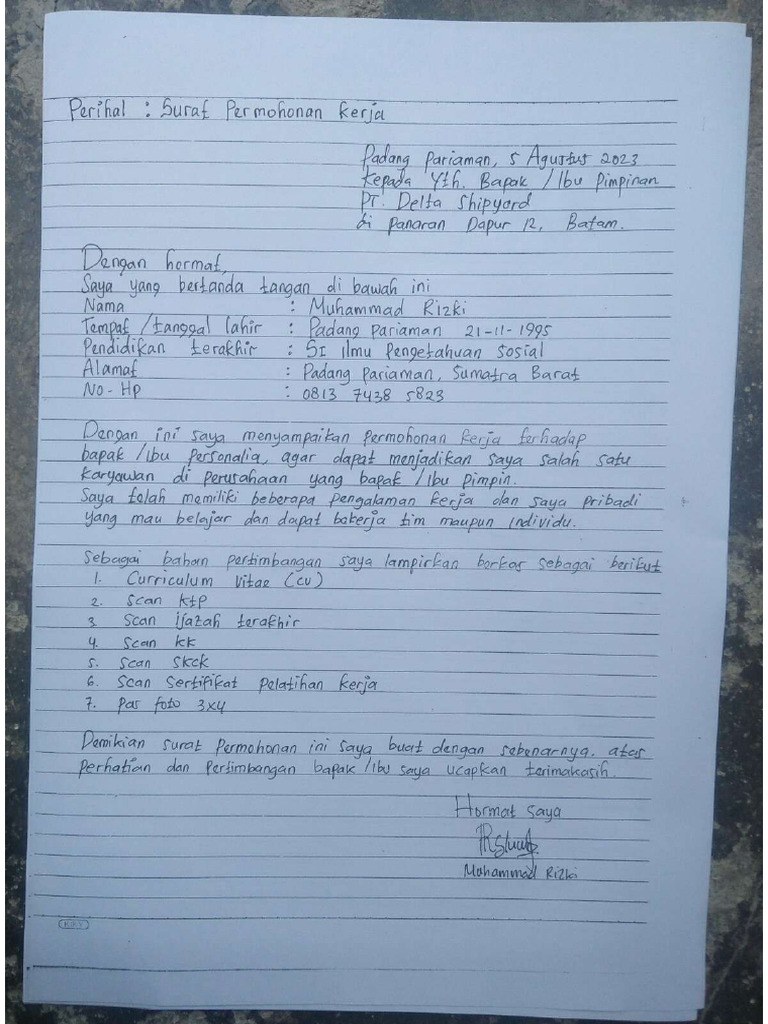 Perihal : Surat Permohonan Kerja
Padang Pariaman, 5 Agustus 2023
Kepada Yth. Bapak / Ibu Pimpinan
PT. Delta Shipyard
di Panaran Dapur 12, Batam.
Dengan hormat,
Saya yang bertanda tangan di bawah ini
Nama : Muhammad Rizki
Tempat / tanggal lahir : Padang pariaman 21-11-1995
Pendidikan terakhir : S1 Ilmu Pengetahuan Sosial
Alamat : Padang pariaman, Sumatra Barat
No-Hp : 0813 7438 5823
Dengan ini saya menyampaikan Permohonan Kerja terhadap
bapak /Ibu Personalia, agar dapat menjadikan saya salah satu
karyawan di perusahaan yang bapak / Ibu pimpin.
Saya telah memiliki beberapa pengalaman kerja dan saya pribadi
yang mau belajar dan dapat bekerja tim maupun individu.
Sebagai bahan pertimbangan saya lampirkan berkas sebagai berikut
1. Curriculum Vitae (CV)
2. Scan KTP
3 Scan ijazah terakhir
4. Scan KK
5. Scan SKCK
6. Scan Sertifikat Pelatihan Kerja
7. Pas foto 3x4
Demikian surat Permohonan ini saya buat dengan sebenarnya. atas
perhatian dan Pertimbangan bapak /Ibu saya ucapkan terimakasih.
Hormat Saya
Muhammad Rizki